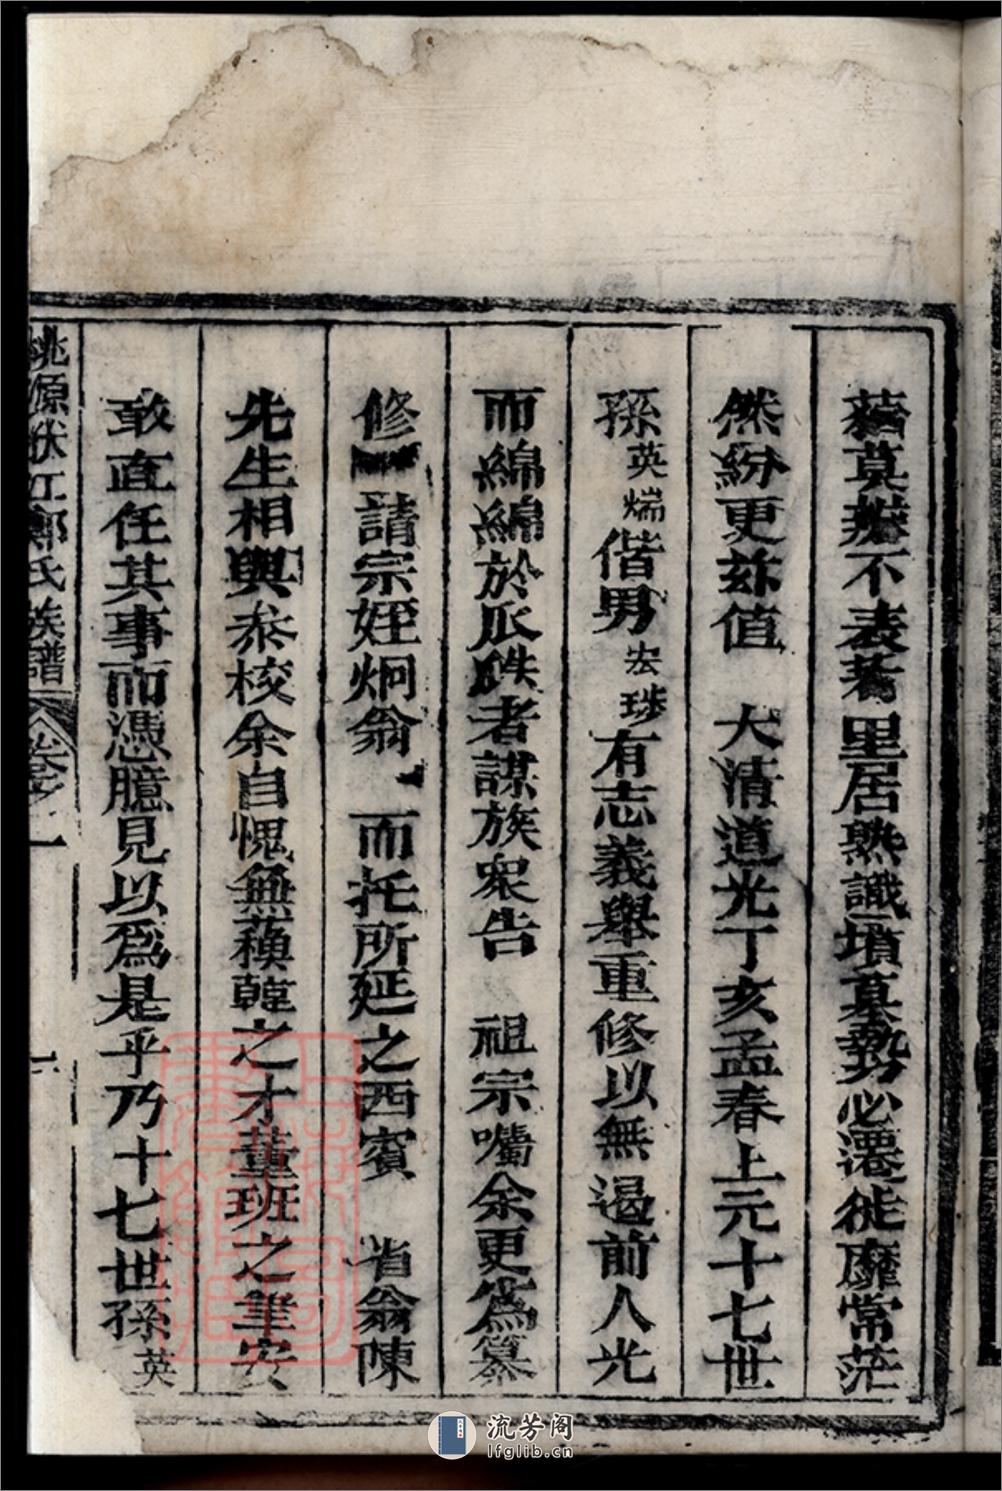 藉莫辨不表著里居熟識墳墓勢必遷徙靡常茫
然紛更茲值　大清道光丁亥孟春上元十七世
孫英煓偕男宏琇有志義舉重修以無遏前人光
而綿綿於瓜瓞者謀族衆告　祖宗囑余更爲纂
修　請宗姪炯翁　而托所延之西賓　省翁陳
先生相與叅校余自愧無蘓韓之才董班之筆安
敢直任其事而憑臆見以爲是乎乃十七世孫英
桃源伏江鄭氏族譜　卷之一
流芳阁
lfglib.cn